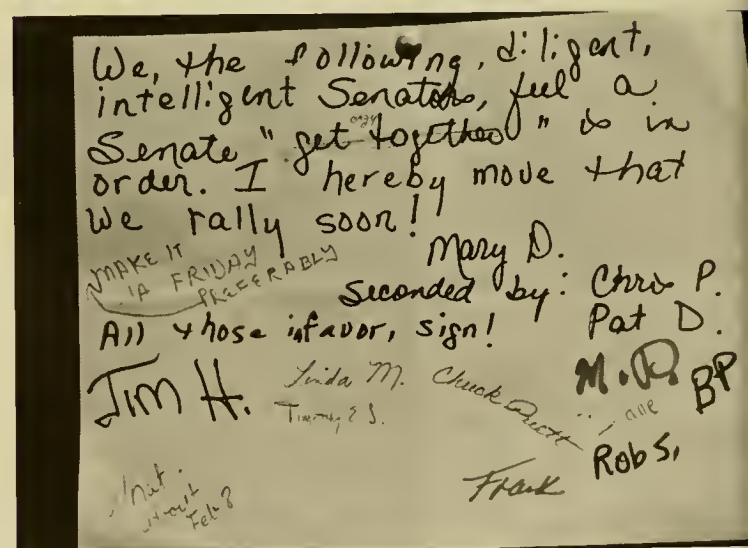 We, the following, diligent,
intelligent Senators, feel a
orgy
Senate "get together" is in
order. I hereby move that
we rally soon!
Mary D.
MAKE IT
A FRIDAY
PREFERABLY
Seconded by: Chris P.
Pat D.
All those infavor, sign!
Jim H.
Linda M.
Chuck
Timothy E S.
M.D.
BP
Jane
Rob S.
Frank
Feb 8